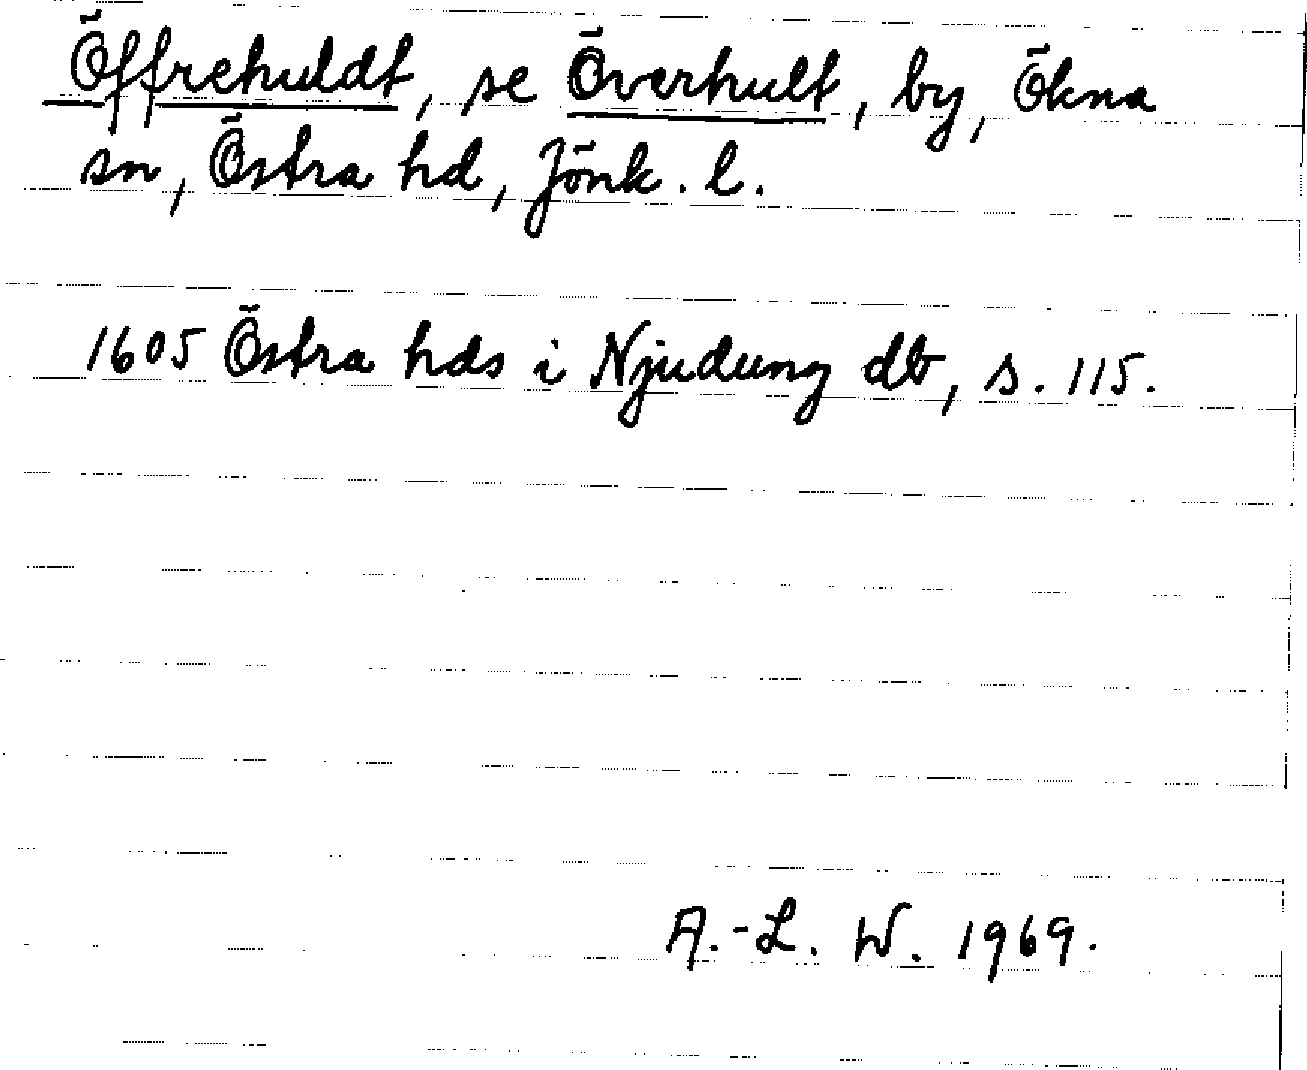 Öffrehuldt, se Överhult, by, Ökna
sn, Östra hd, Jönk. l.
1605 Östra hds i Njudung db, s. 115.
A.-L. W. 1969.